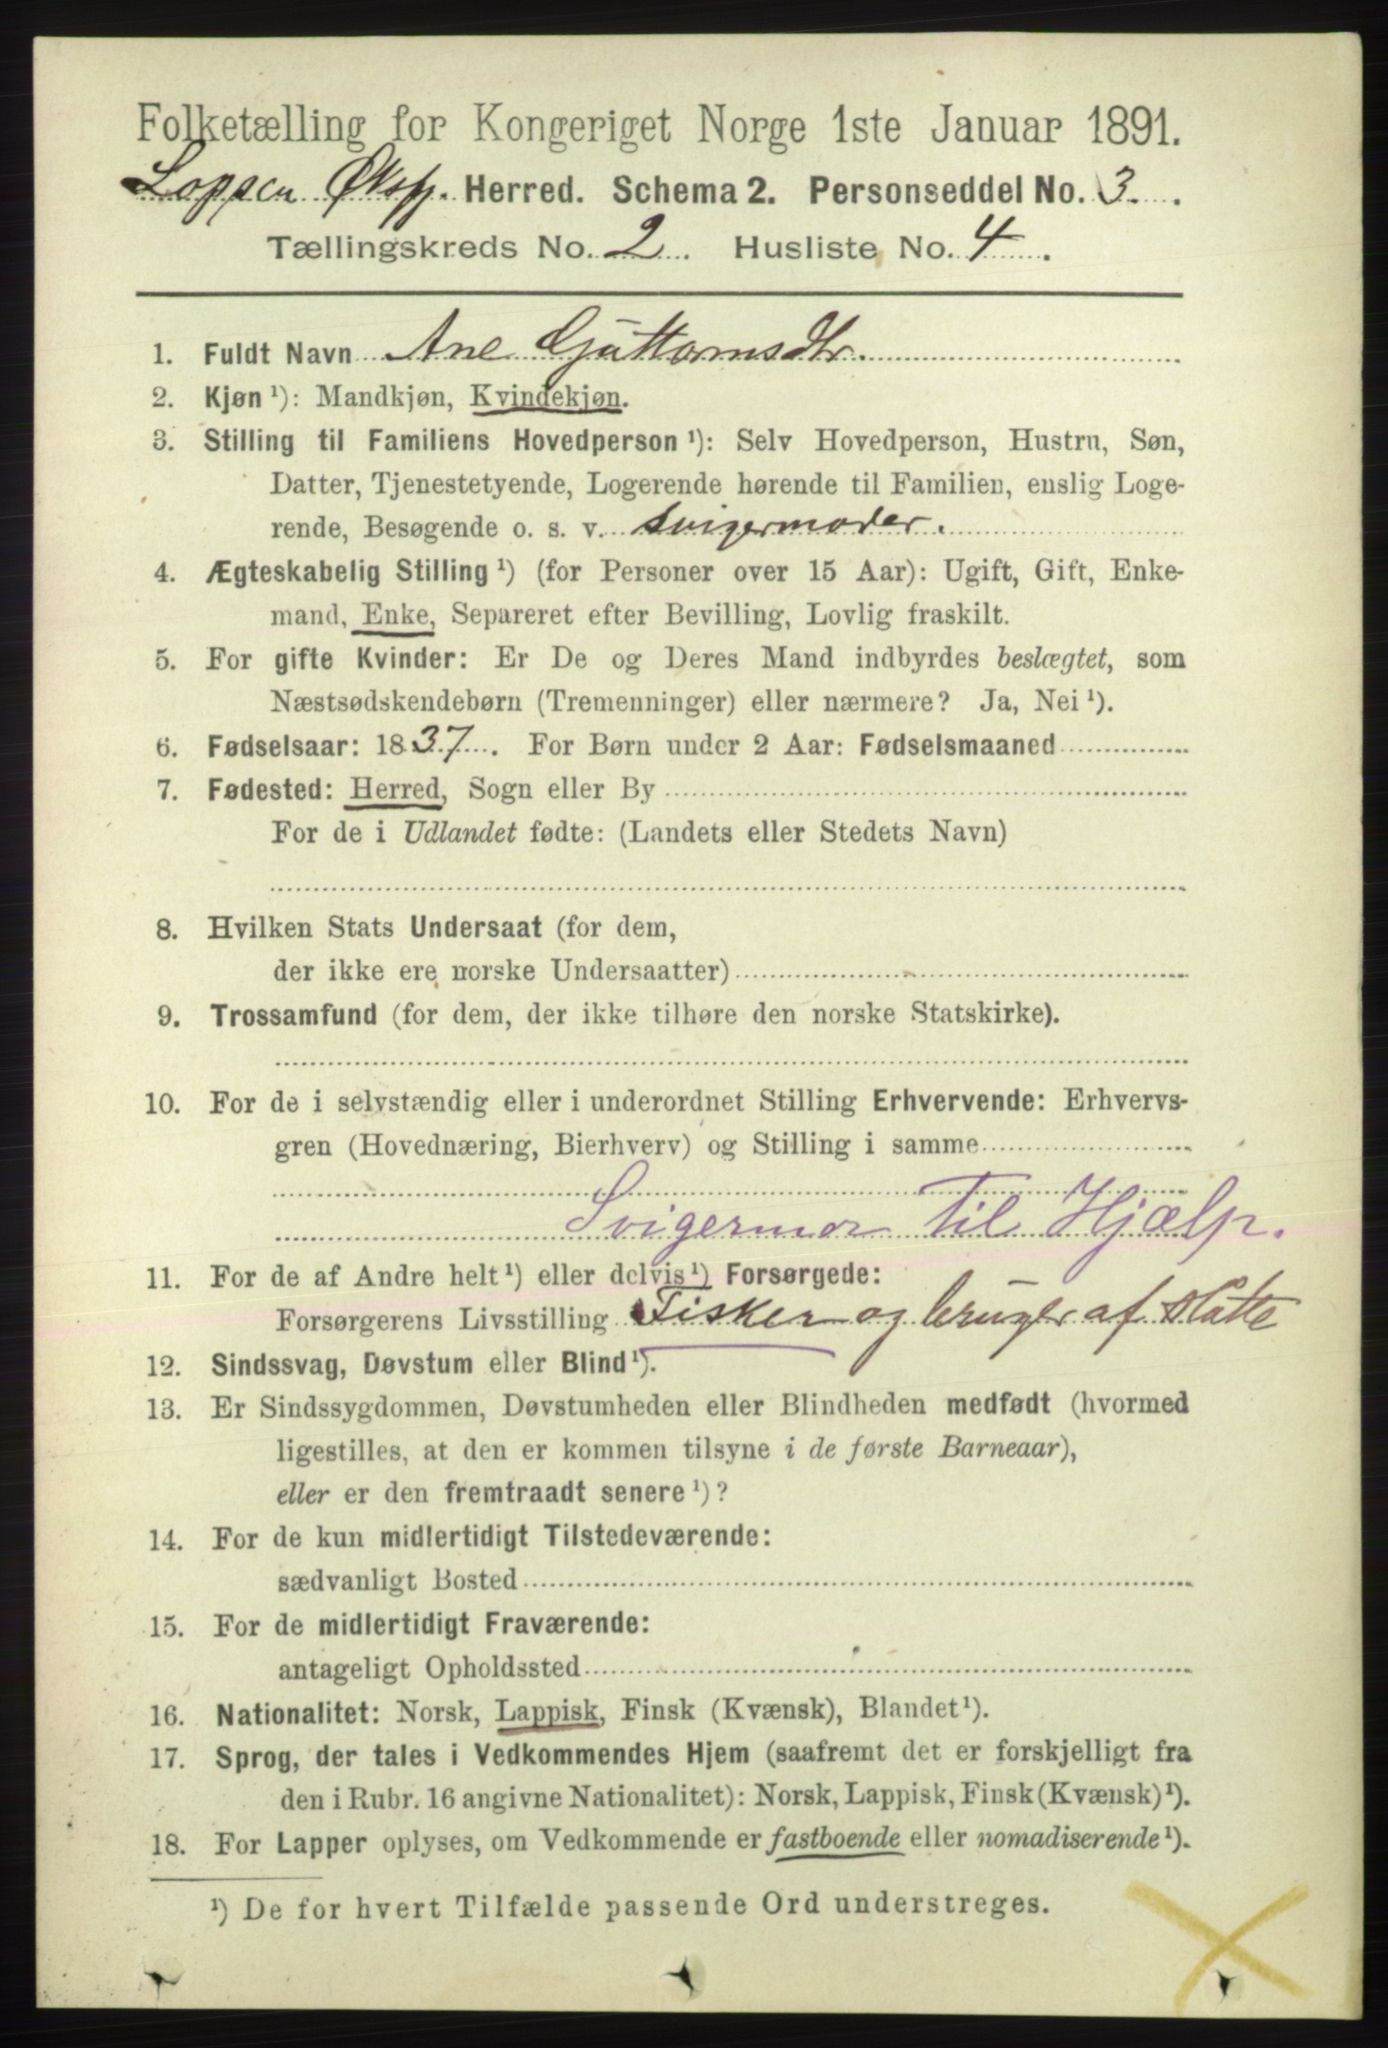 Folketælling for Kongeriget Norge 1ste Januar 1891.
Loppen Øksfj. Herred. Schema 2. Personseddel No. 3.
Tællingskreds No. 2. Husliste No. 4.
1. Fuldt Navn Ane Guttormsdtr.
2. Kjøn ¹): Mandkjøn, Kvindekjøn.
3. Stilling til Familiens Hovedperson ¹): Selv Hovedperson, Hustru, Søn,
Datter, Tjenestetyende, Logerende hørende til Familien, enslig Loge-
rende, Besøgende o. s. v. Svigermoder.
4. Ægteskabelig Stilling ¹) (for Personer over 15 Aar): Ugift, Gift, Enke-
mand, Enke, Separeret efter Bevilling, Lovlig fraskilt.
5. For gifte Kvinder: Er De og Deres Mand indbyrdes beslægtet, som
Næstsødskendebørn (Tremenninger) eller nærmere? Ja, Nei ¹).
6. Fødselsaar: 1837. For Børn under 2 Aar: Fødselsmaaned
7. Fødested: Herred, Sogn eller By
For de i Udlandet fødte: (Landets eller Stedets Navn)
8. Hvilken Stats Undersaat (for dem,
der ikke ere norske Undersaatter)
9. Trossamfund (for dem, der ikke tilhøre den norske Statskirke).
10. For de i selvstændig eller i underordnet Stilling Erhvervende: Erhvervs-
gren (Hovednæring, Bierhverv) og Stilling i samme
Svigermor til Hjælp.
11. For de af Andre helt ¹) eller delvis ¹) Forsørgede:
Forsørgerens Livsstilling Fisker og bruger af
12. Sindssvag, Døvstum eller Blind ¹).
13. Er Sindssygdommen, Døvstumheden eller Blindheden medfødt (hvormed
ligestilles, at den er kommen tilsyne i de første Barneaar),
eller er den fremtraadt senere ¹)?
14. For de kun midlertidigt Tilstedeværende:
sædvanligt Bosted
15. For de midlertidigt Fraværende:
antageligt Opholdssted
16. Nationalitet: Norsk, Lappisk, Finsk (Kvænsk), Blandet ¹).
17. Sprog, der tales i Vedkommendes Hjem (saafremt det er forskjelligt fra
den i Rubr. 16 angivne Nationalitet): Norsk, Lappisk, Finsk (Kvænsk) ¹).
18. For Lapper oplyses, om Vedkommende er fastboende eller nomadiserende ¹).
¹) De for hvert Tilfælde passende Ord understreges.